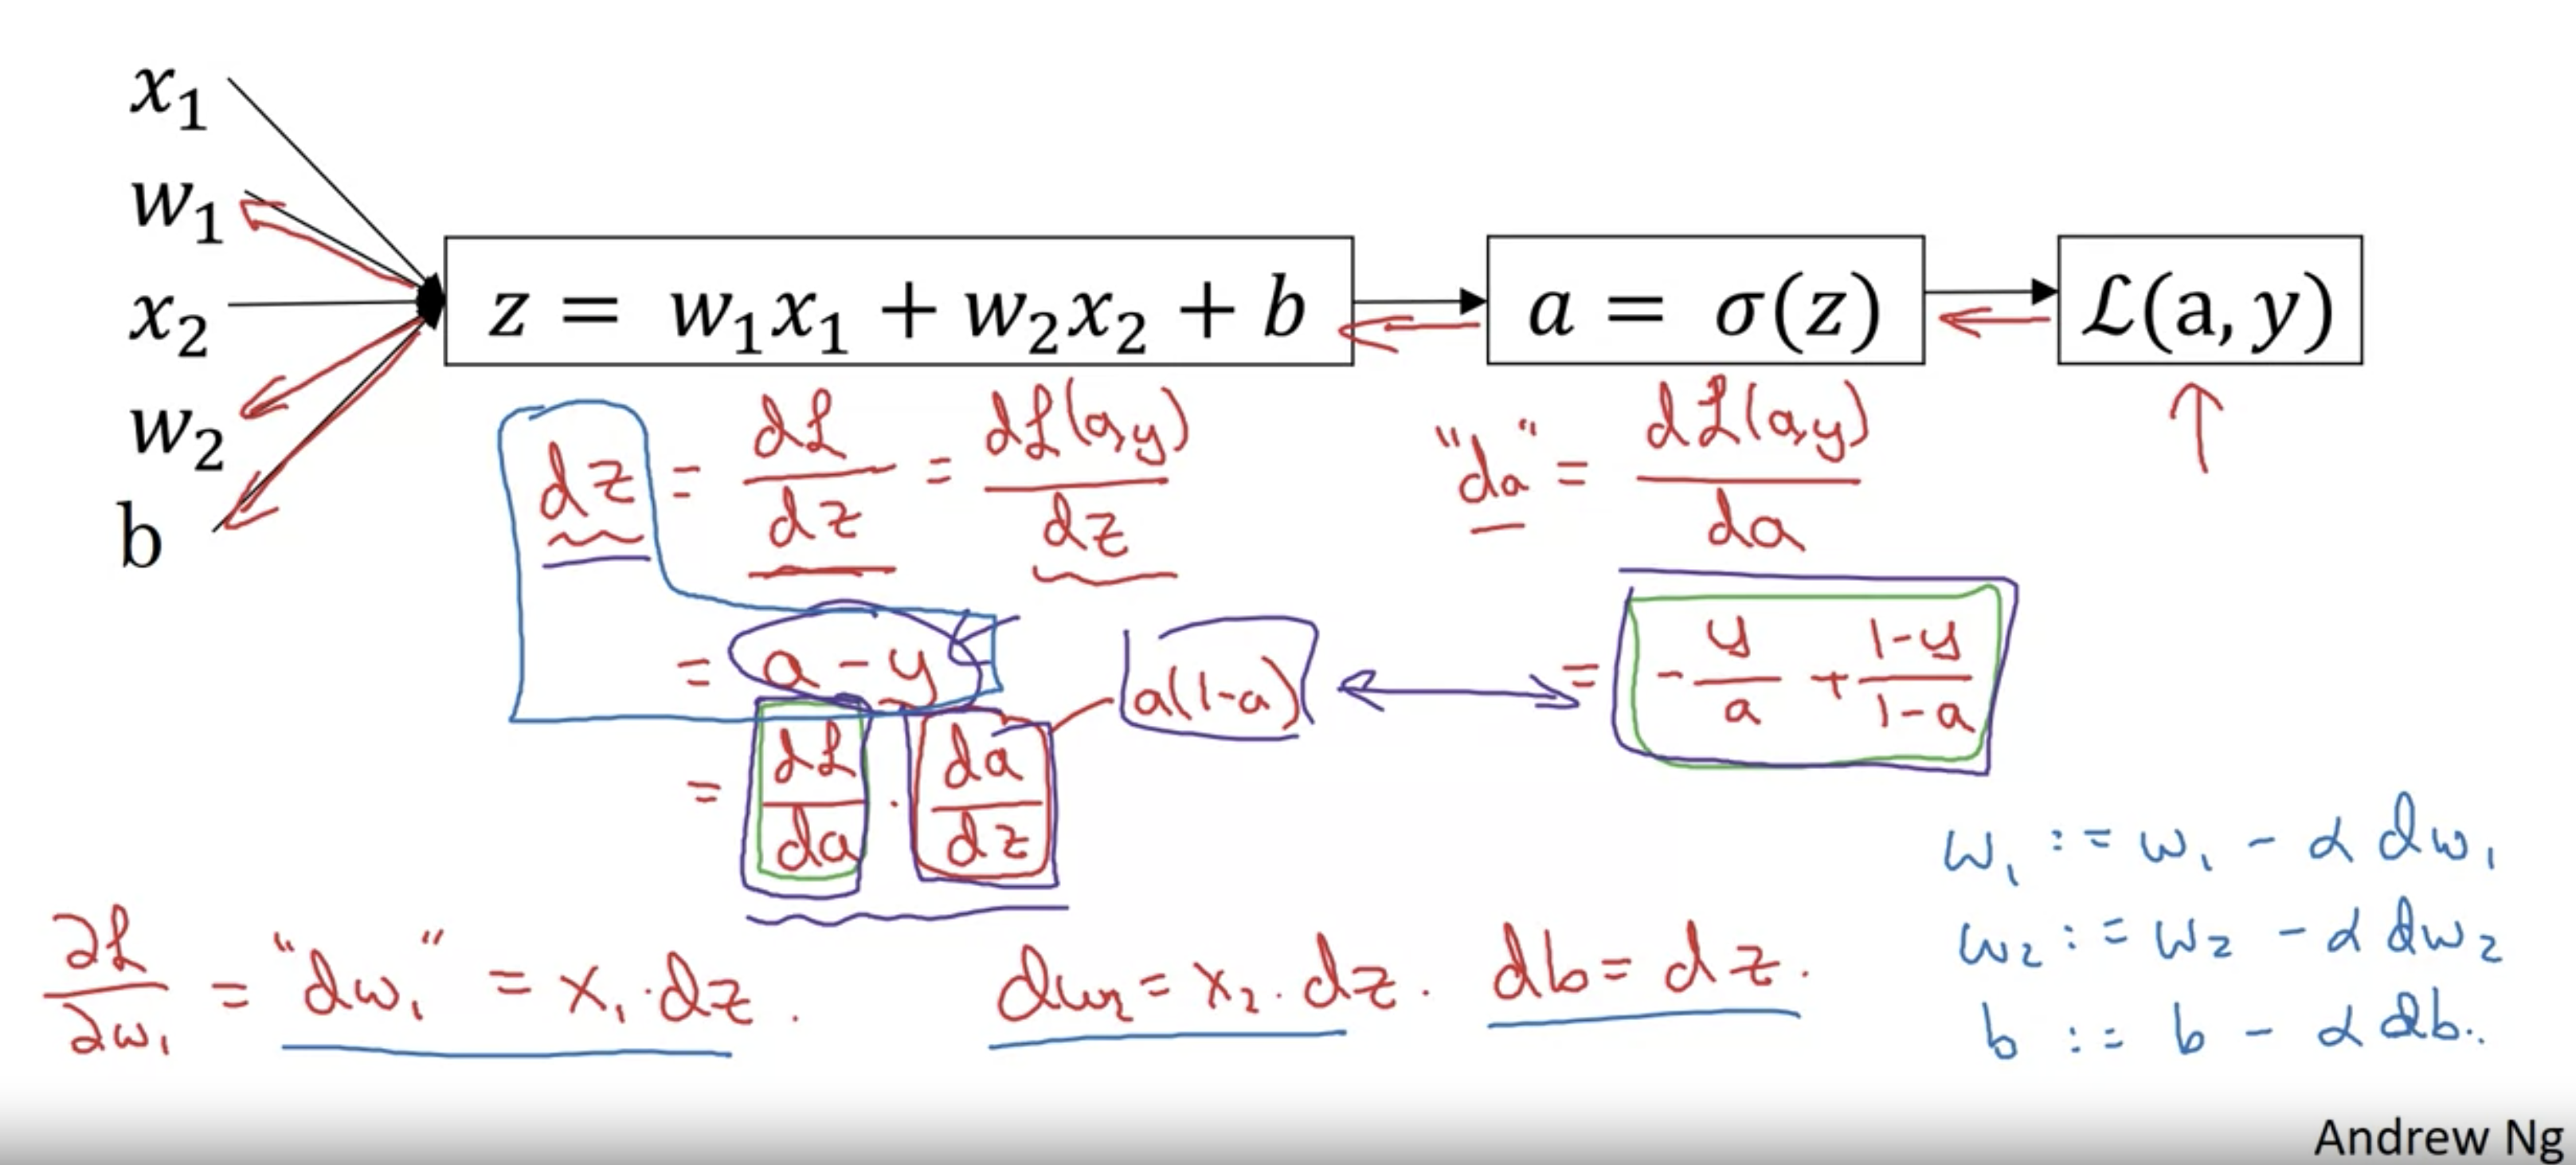 x₁
w₁
x₂
w₂
b
z = w₁x₁ + w₂x₂ + b
a = σ(z)
ℒ(a, y)
dz = dℒ/dz = dℒ(a,y)/dz
"da" = dℒ(a,y)/da
= a - y
a(1-a)
= - y/a + 1-y/1-a
= dℒ/da · da/dz
∂ℒ/∂w₁ = "dw₁" = x₁·dz.
dw₂ = x₂·dz.
db = dz.
w₁ := w₁ - α dw₁
w₂ := w₂ - α dw₂
b := b - α db.
Andrew Ng